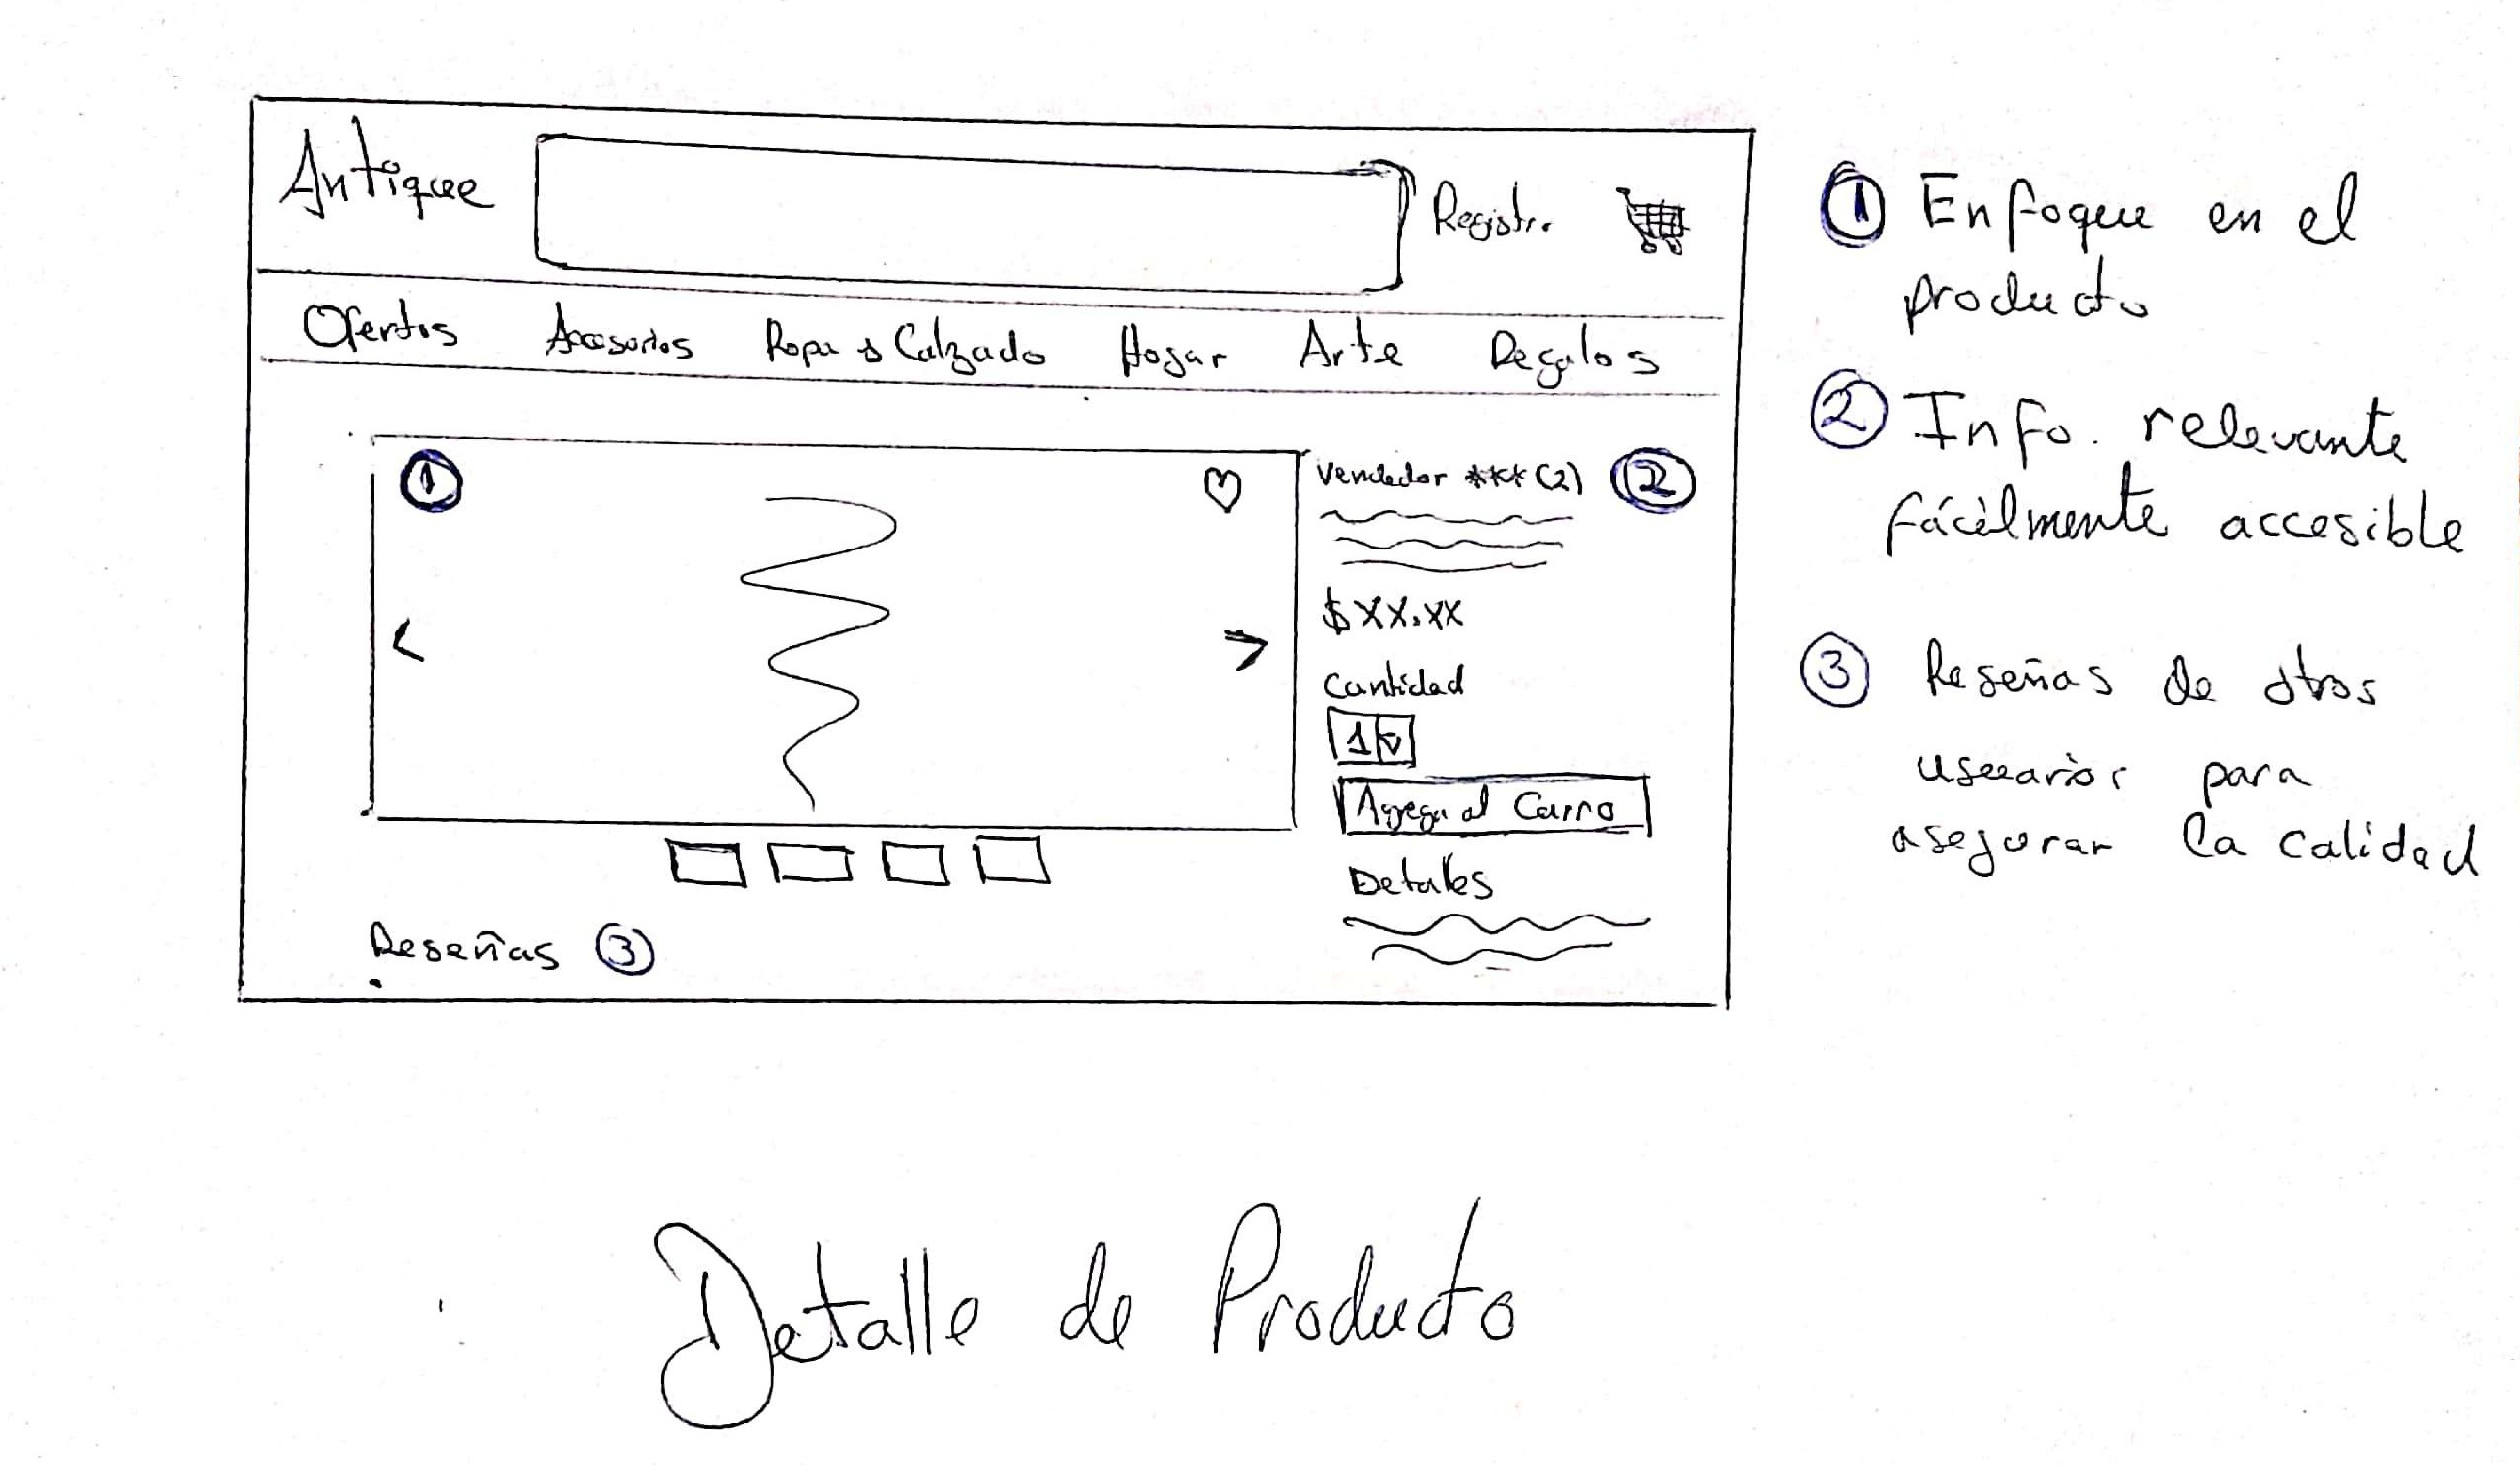 Antique
Registr.
Ofertas Accesorios Ropa y Calzado Hogar Arte Regalos
1
Vendedor *** (2) 2
< >
$XX.XX
Cantidad
1
Agregar al Carro
Detalles
Reseñas 3
1 Enfoque en el
producto
2 Info. relevante
fácilmente accesible
3 Reseñas de otros
usuarios para
asegurar la calidad
Detalle de Producto